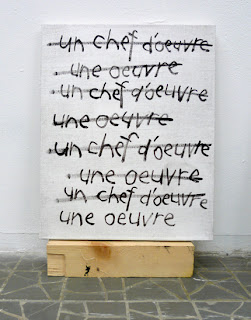 un chef d'oeuvre
une oeuvre
un chef d'oeuvre
une oeuvre
un chef d'oeuvre
une oeuvre
un chef d'oeuvre
une oeuvre